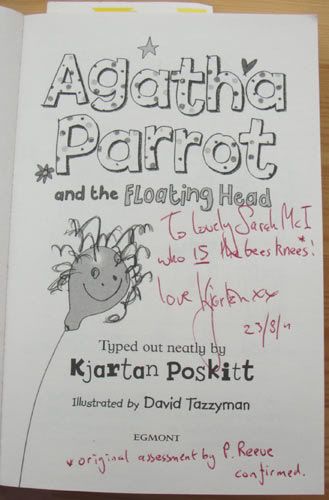 Agatha
Parrot
and the Floating Head
To lovely Sarah McI
who IS the bees knees*!
love Kjartan xx
23/8/11
Typed out neatly by
Kjartan Poskitt
Illustrated by David Tazzyman
EGMONT
* original assessment by P. Reeve
confirmed.